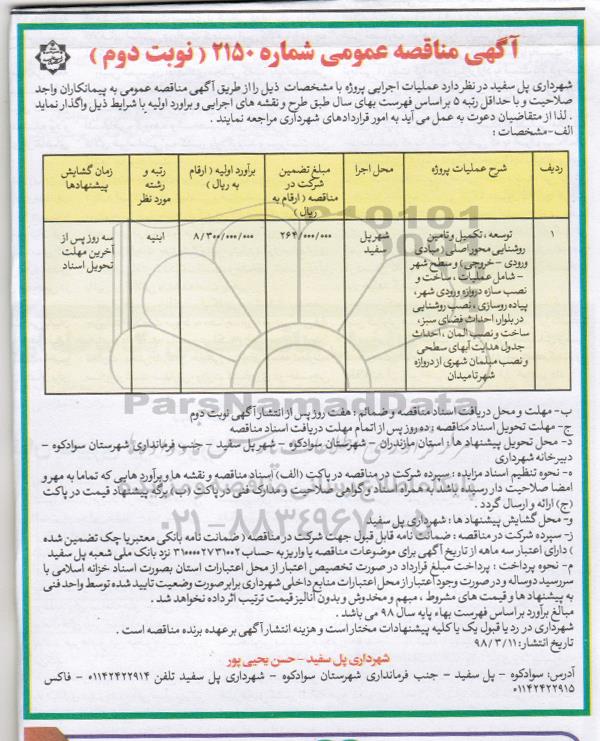 آگهی مناقصه عمومی شماره ۲۱۵۰ ( نوبت دوم )
شهرداری پل سفید در نظر دارد عملیات اجرایی پروژه با مشخصات ذیل را از طریق آگهی مناقصه عمومی به پیمانکاران واجد
صلاحیت و با حداقل رتبه ۵ بر اساس فهرست بهای سال طبق طرح و نقشه های اجرایی و براورد اولیه با شرایط ذیل واگذار نماید
. لذا از متقاضیان دعوت به عمل می آید به امور قراردادهای شهرداری مراجعه نمایند .
الف-مشخصات :
ردیف
شرح عملیات پروژه
محل اجرا
مبلغ تضمین
شرکت در
مناقصه ( ارقام به
ریال )
برآورد اولیه ( ارقام
به ریال )
رتبه و
رشته
مورد نظر
زمان گشایش
پیشنهادها
۱
توسعه ، تکمیل و تامین
روشنایی محور اصلی ( مبادی
ورودی - خروجی ) و سطح شهر
- شامل عملیات ، ساخت و
نصب سازه دروازه ورودی شهر ،
پیاده روسازی ، نصب روشنایی
در بلوار، احداث فضای سبز ،
ساخت و نصب المان ، احداث
جدول هدایت آبهای سطحی
و نصب مبلمان شهری از دروازه
شهر تا میدان
شهر پل
سفید
۲۶۴/۰۰۰/۰۰۰
۸/۳۰۰/۰۰۰/۰۰۰
ابنیه
سه روز پس از
آخرین مهلت
تحویل اسناد
ب- مهلت و محل دریافت اسناد مناقصه و ضمائم : هفت روز پس از انتشار آگهی نوبت دوم
ج- مهلت تحویل اسناد مناقصه : ده روز پس از اتمام مهلت دریافت اسناد مناقصه
د- محل تحویل پیشنهاد ها : استان مازندران - شهرستان سوادکوه - شهر پل سفید - جنب فرمانداری شهرستان سوادکوه -
دبیرخانه شهرداری
ه- نحوه تنظیم اسناد مزایده : سپرده شرکت در مناقصه در پاکت (الف) اسناد مناقصه و نقشه ها و برآورد هایی که تماما به مهر و
امضا صلاحیت دار رسیده باشد به همراه اسناد و گواهی صلاحیت و مدارک فنی در پاکت (ب) برگه پیشنهاد قیمت در پاکت
(ج) ارائه و ارسال گردد .
و- محل گشایش پیشنهاد ها : شهرداری پل سفید
ز- سپرده شرکت در مناقصه : ضمانت نامه قابل قبول جهت شرکت در مناقصه ( ضمانت نامه بانکی معتبر یا چک تضمین شده
) دارای اعتبار سه ماهه از تاریخ آگهی برای موضوعات مناقصه یا واریز به حساب ۳۱۰۰۰۰۲۷۳۱۰۰۲ نزد بانک ملی شعبه پل سفید
م- نحوه پرداخت : پرداخت مبلغ قرارداد در صورت تخصیص اعتبار از محل اعتبارات استان بصورت اسناد خزانه اسلامی با
سررسید دوساله و در صورت وجود اعتبار از محل اعتبارات منابع داخلی شهرداری برابر صورت وضعیت تایید شده توسط واحد فنی
به پیشنهاد ها و قیمت های مشروط ، مبهم و مخدوش و بدون آنالیز قیمت ترتیب اثر داده نخواهد شد .
مبالغ برآورد بر اساس فهرست بهاء پایه سال ۹۸ می باشد .
شهرداری در رد یا قبول یک یا کلیه پیشنهادات مختار است و هزینه انتشار آگهی بر عهده برنده مناقصه است .
تاریخ انتشار: ۹۸/۳/۱۱
شهرداری پل سفید - حسن یحیی پور
آدرس: سوادکوه - پل سفید - جنب فرمانداری شهرستان سوادکوه - شهرداری پل سفید تلفن ۰۱۱۴۲۴۲۲۹۱۴ - فاکس
۰۱۱۴۲۴۲۲۹۱۵
ParsNamadData
۰۲۱-۸۸۳۴۹۶۷۰-۵